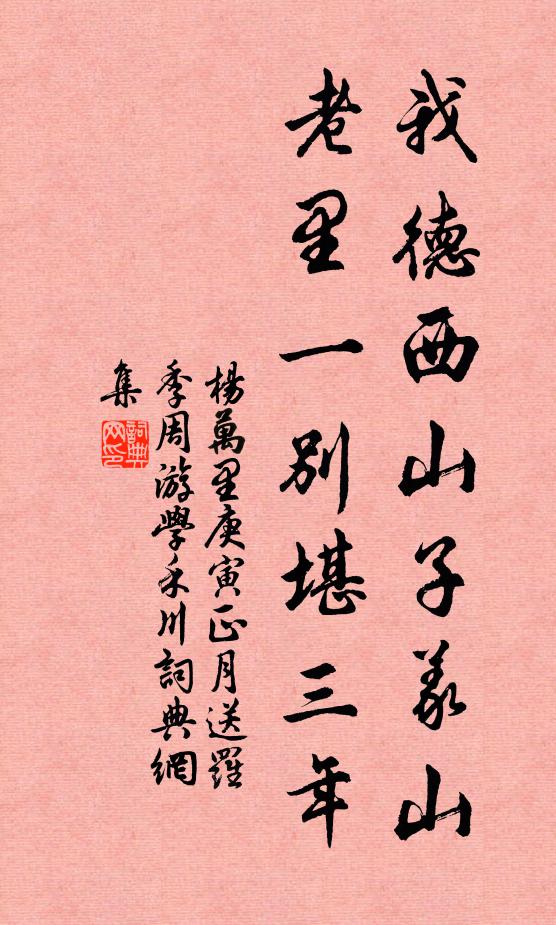 我德西山子義山
老里一別堪三年
楊萬里庚寅正月送羅
季周游學禾川詞典網
集
詞典网印